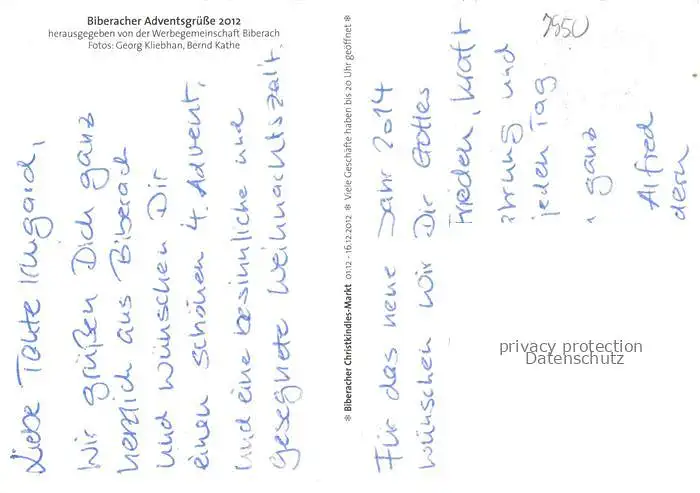 Biberacher Adventsgrüße 2012
herausgegeben von der Werbegemeinschaft Biberach
Fotos: Georg Kliebhan, Bernd Kathe
Liebe Tante Irmgard,
Wir grüßen Dich ganz
herzlich aus Biberach
und wünschen Dir
einen schönen 4. Advent,
und eine besinnliche und
gesegnete Weihnachtszeit.
✻ Biberacher Christkindles-Markt 01.12 - 16.12.2012 ✻ Viele Geschäfte haben bis 20 Uhr geöffnet ✻
Für das neue Jahr 2014
wünschen wir Dir Gottes
Frieden, Kraft
ahrung und
jeden Tag.
ganz
Alfred
dern
7950
privacy protection
Datenschutz